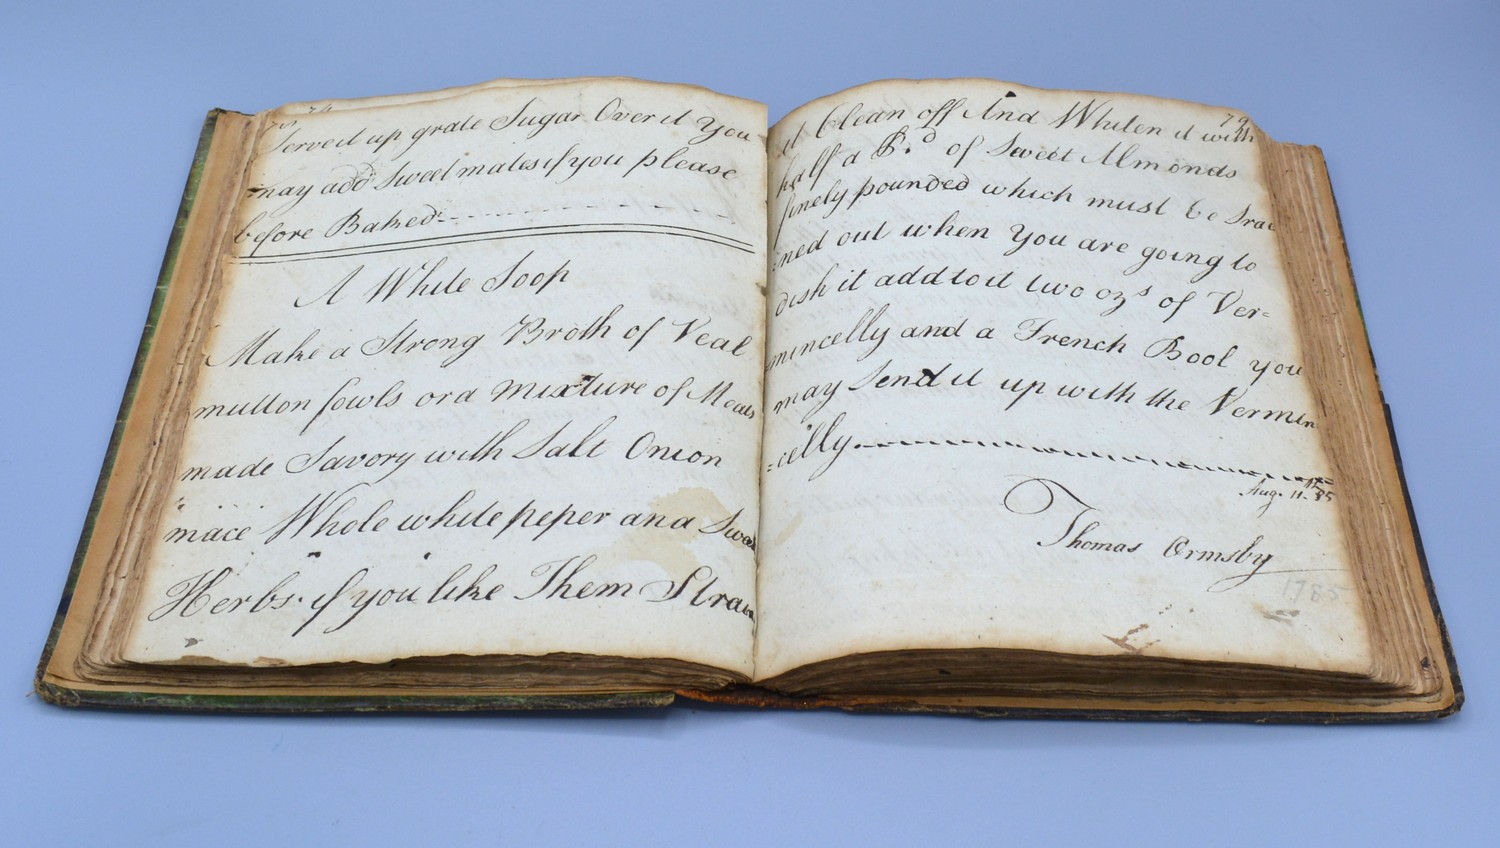 Serve it up grate Sugar Over it You
may add Sweetmates if you please
before Baked
A White Soop
Make a Strong Broth of Veal
mutton fowls or a mixture of Meats
made Savory with Salt Onion
mace Whole white peper and Sweet
Herbs if you like Them Strain
79
it Clean off And Whiten it with
half a of Sweet Almonds
finely pounded which must be Strai
ned out when You are going to
dish it add to it two ozs of Ver=
mincelly and a French Bool you
may Send it up with the Vermin
=celly.
Aug. 11. 85
Thomas Ormsby
1785